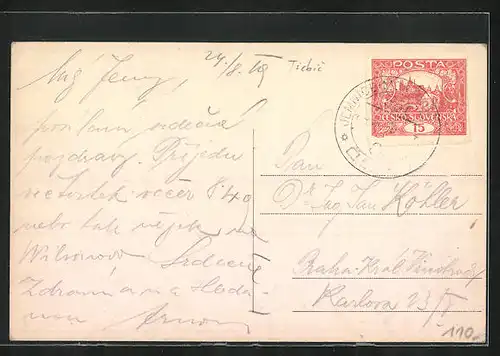 Můj Jeny,
24/8. 19
Třebíč
posílam srdečné
pozdravy. Přijedu
ve čtvrtek večer 8.49
nebo tak nějak na
Wilsonovo Srdečně
Zdraví a na shleda-
nou Arnou
POSTA
ČESKOSLOVENSKÁ
15
JEMNICE
Pan
Dr. Ing. Jan Köhler
Praha-Král. Vinohrady
Karlova 23/II
110.-